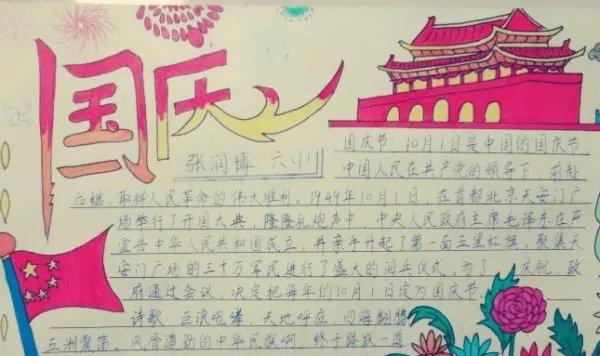 国庆
张润博 六(1)
国庆节：10月1日是中国的国庆节，
中国人民在共产党的领导下，前赴
后继，取得人民革命的伟大胜利。1949年10月1日，在首都北京天安门广
场举行了开国大典，隆隆礼炮声中，中央人民政府主席毛泽东庄严
宣告中华人民共和国成立，并亲手升起了第一面五星红旗。聚集天
安门广场的三十万军民进行了盛大的阅兵仪式，为了 庆祝，政
府通过会议，决定把每年的10月1日定为国庆节
诗歌：巨浪咆哮，天地呼应，四海翻腾
五洲震荡，风雪遒劲的中华民族啊，终于踏破一道